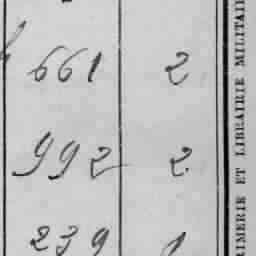 661 2
992 2
239 1
RIMERIE ET LIBRAIRIE MILITAI